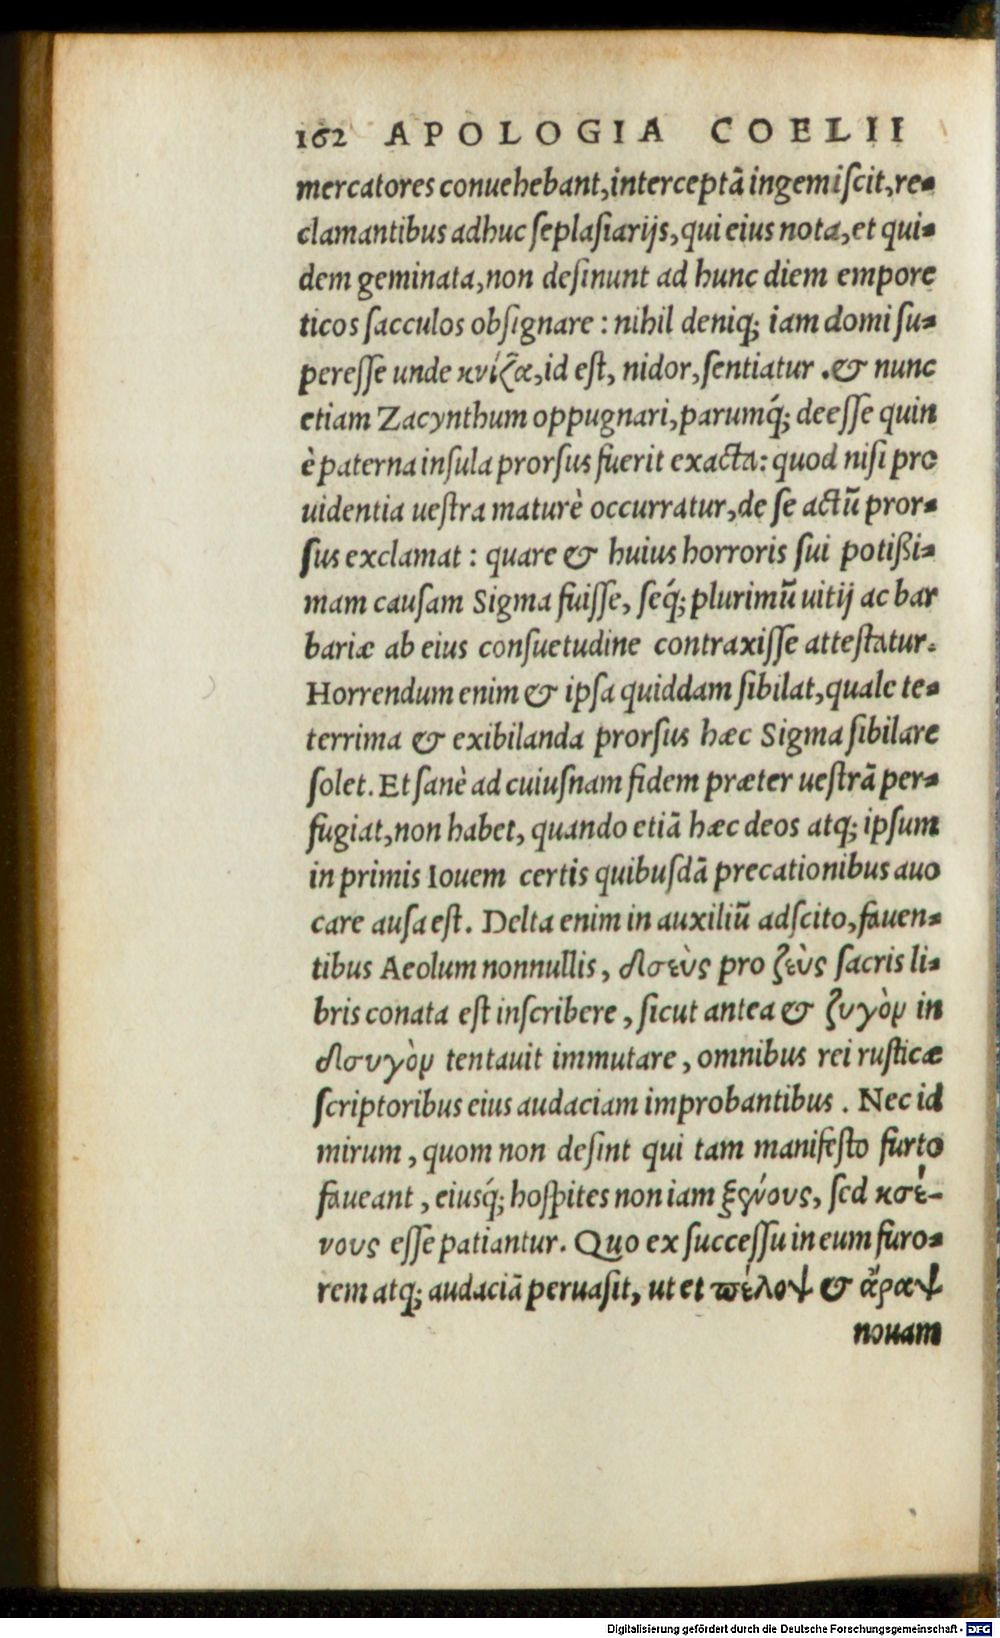 162 APOLOGIA COELII
mercatores conuehebant, interceptā ingemiſcit, re-
clamantibus adhuc ſeplaſiarijs, qui eius nota, et qui-
dem geminata, non deſinunt ad hunc diem empore
ticos ſacculos obſignare : nihil deniq; iam domi ſu-
pereſſe unde κνίζα, id eſt, nidor, ſentiatur . & nunc
etiam Zacynthum oppugnari, parumq́; deeſſe quin
è paterna inſula prorſus fuerit exacta: quod niſi pro
uidentia ueſtra maturè occurratur, de ſe actū pror-
ſus exclamat : quare & huius horroris ſui potißi-
mam cauſam Sigma fuiſſe, ſeq́; plurimū uitij ac bar
bariæ ab eius conſuetudine contraxiſſe atteſtatur.
Horrendum enim & ipſa quiddam ſibilat, quale te-
terrima & exibilanda prorſus hæc Sigma ſibilare
ſolet. Et ſanè ad cuiuſnam fidem præter ueſtrā per-
fugiat, non habet, quando etiā hæc deos atq; ipſum
in primis Iouem certis quibuſdā precationibus auo
care auſa eſt. Delta enim in auxiliū adſcito, fauen-
tibus Aeolum nonnullis, δσεὺς pro ζεὺς ſacris li-
bris conata eſt inſcribere, ſicut antea & ζυγὸν in
δσυγὸν tentauit immutare, omnibus rei ruſticæ
ſcriptoribus eius audaciam improbantibus . Nec id
mirum, quom non deſint qui tam manifeſto furto
faueant, eiusq́; hoſpites non iam ξένους, ſed κσέ-
νους eſſe patiantur. Quo ex ſucceſſu in eum furo-
rem atq; audaciā peruaſit, ut et πέλοψ & ἄραψ
nouam
Digitalisierung gefördert durch die Deutsche Forschungsgemeinschaft - DFG